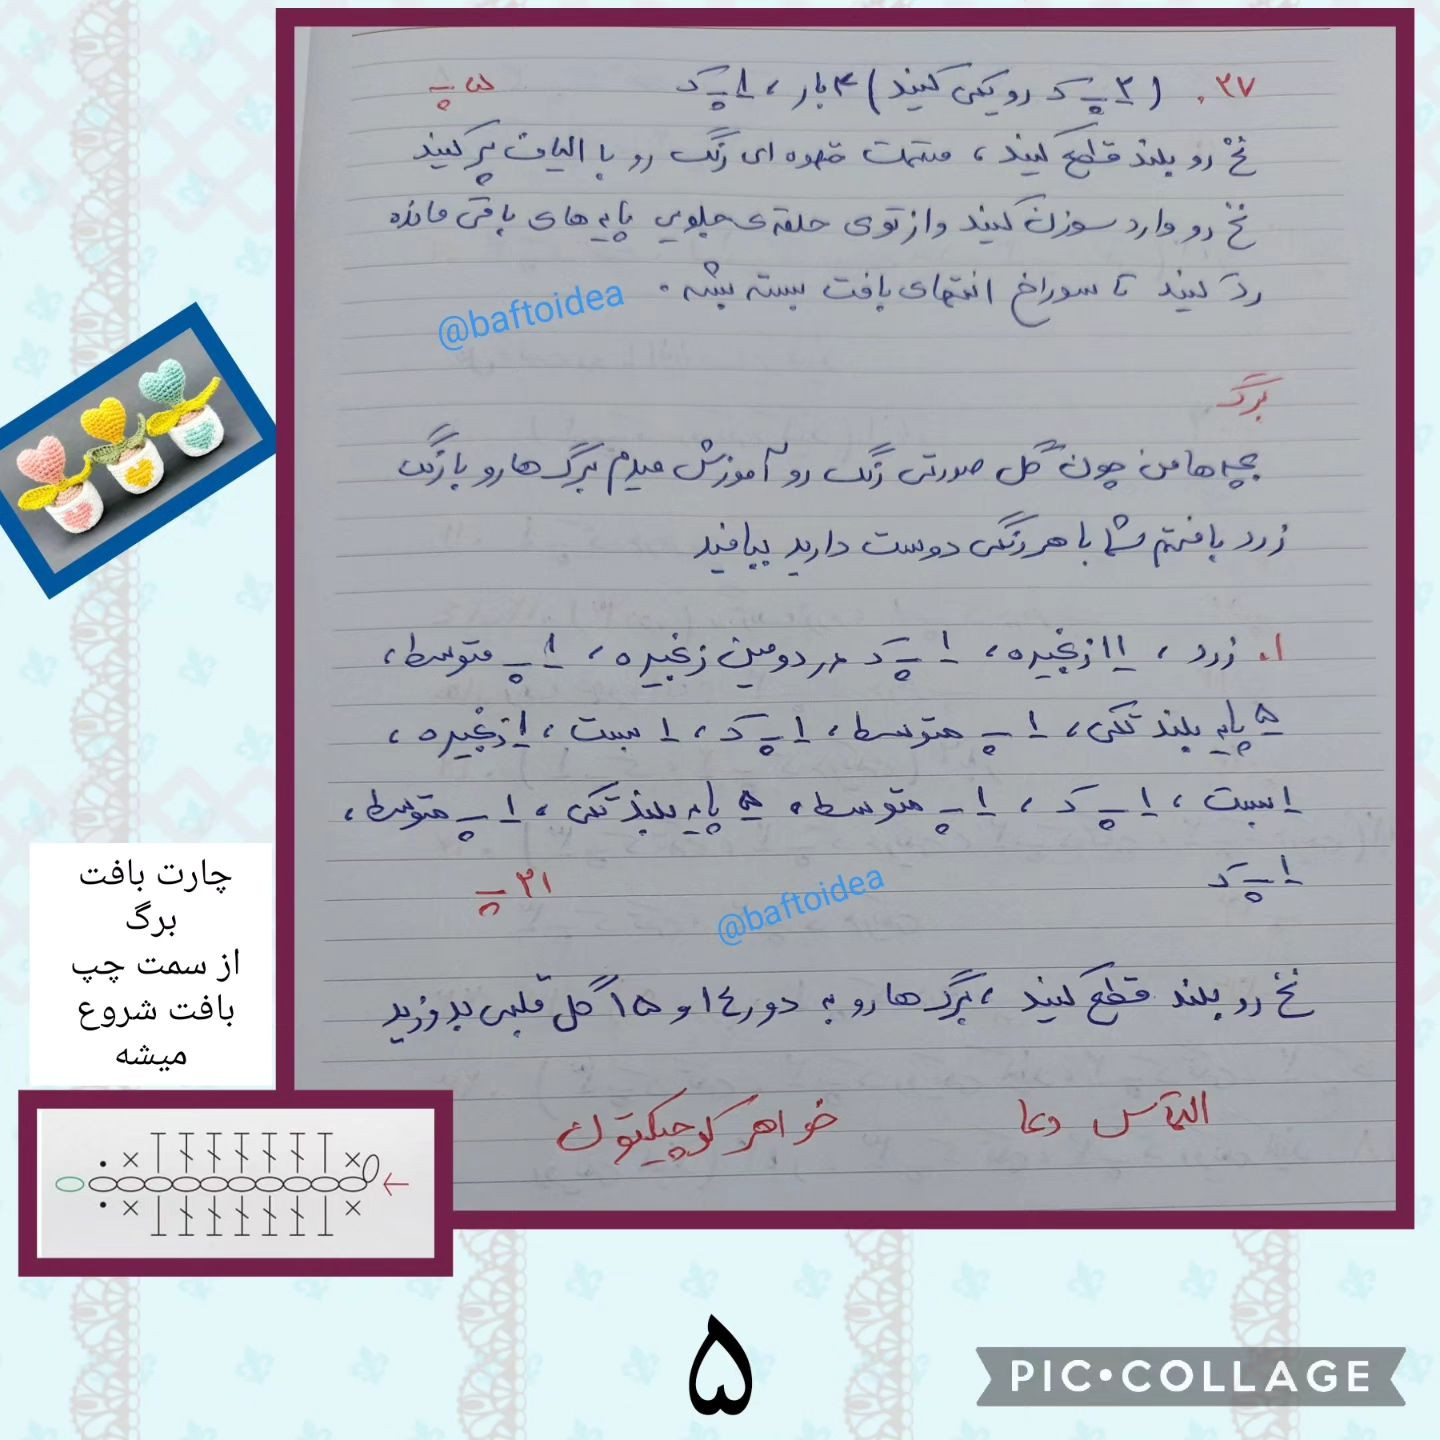 ۲۷. (۲ پ ک رو یکی کنید) ۴ بار، ۱ پ ک ۵ پ
نخ رو بلند قطع کنید، قسمت قهوه ای رنگ رو با الیاف پر کنید
نخ رو وارد سوزن کنید و از توی حلقه ی جلویی پایه های باقی مانده
رد کنید تا سوراخ انتهای بافت بسته بشه.
@baftoidea
برگ
بچه ها من چون گل صورتی رنگ رو آموزش میدم برگ ها رو با رنگ
زرد بافتم شما با هر رنگی دوست دارید ببافید
۱. زرد، ۱۱ زنجیره، ۱ پ ک در دومین زنجیره، ۱ پ متوسط،
۵ پایه بلند تکی، ۱ پ متوسط، ۱ پ ک، ۱ بست، ۱ زنجیره،
۱ بست، ۱ پ ک، ۱ پ متوسط، ۵ پایه بلند تکی، ۱ پ متوسط،
۱ پ ک ۲۱ پ
@baftoidea
نخ رو بلند قطع کنید، برگ ها رو به دور ۱۴ و ۱۵ گل قلبی بدوزید
التماس دعا خواهر کوچیکتون
چارت بافت
برگ
از سمت چپ
بافت شروع
میشه
۵
PIC•COLLAGE